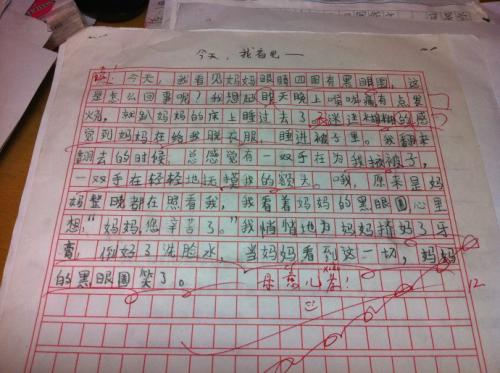 今天，我看见妈妈眼睛四周有黑眼圈，这
是怎么回事呢？我想起昨天晚上咽喉痛有点发
烧，就趴妈妈的床上睡过去了。迷迷糊糊的感
觉到妈妈在给我脱衣服，睡进被子里。我翻来
翻去的时候，总感觉有一双手在为我掖被子，
一双手在轻轻地抚摸我的额头。哦，原来是妈
妈整晚都在照看我，我看着妈妈的黑眼圈心里
想："妈妈，您辛苦了。"我悄悄地为妈妈挤好了牙
膏，倒好了洗脸水，当妈妈看到这一切，妈妈
的黑眼圈笑了。
母慈儿孝！
12